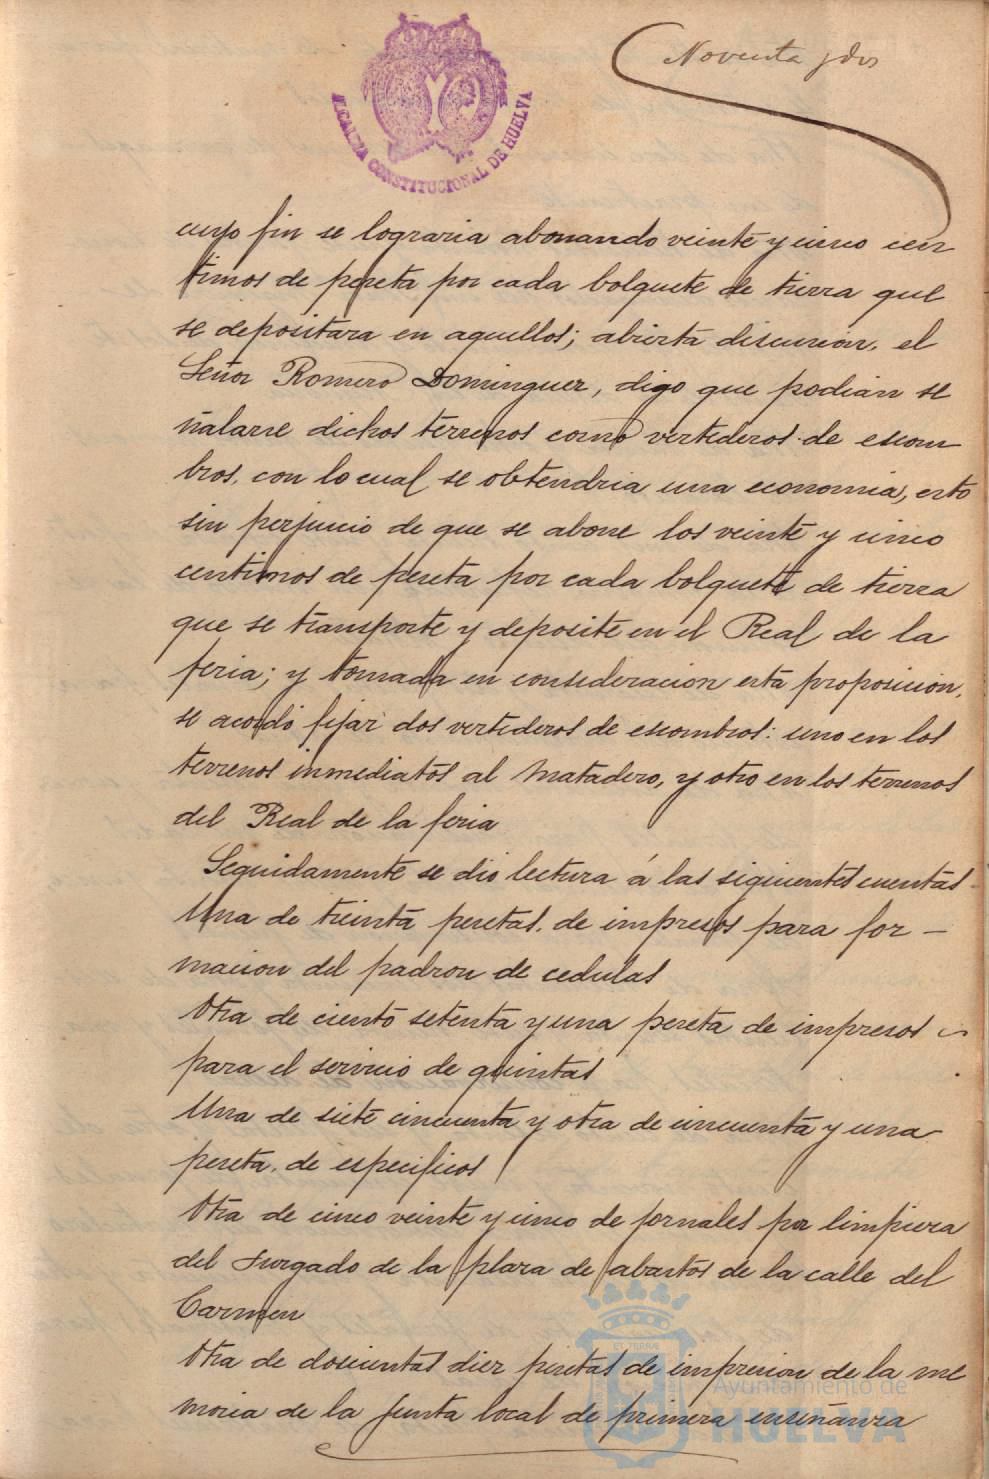 Noventa y dos
ALCALDIA CONSTITUCIONAL DE HUELVA
cuyo fin se lograria abonando veinte y cinco cen
timos de peseta por cada bolquete de tierra que
se depositara en aquellos; abierta discusion, el
Señor Romero Dominguez, digo que podian se
ñalarse dichos terrenos como vertederos de escom
bros, con lo cual se obtendria una economia, esto
sin perjuicio de que se abone los veinte y cinco
centimos de peseta por cada bolquete de tierra
que se transporte y deposite en el Real de la
feria; y tomada en consideracion esta proposicion,
se acordó fijar dos vertederos de escombros: uno en los
terrenos inmediatos al Matadero, y otro en los terrenos
del Real de la feria
Seguidamente se dio lectura á las siguientes cuentas
Una de treinta pesetas, de impresos para for-
macion del padron de cedulas
Otra de ciento setenta y una peseta de impresos
para el servicio de quintas
Una de siete cincuenta y otra de cincuenta y una
peseta, de especificos
Otra de cinco veinte y cinco de jornales por limpieza
del Juzgado de la plaza de abastos de la calle del
Carmen
Otra de doscientas diez pesetas de impresion de la me
moria de la Junta local de primera enseñanza
Ayuntamiento de
HUELVA